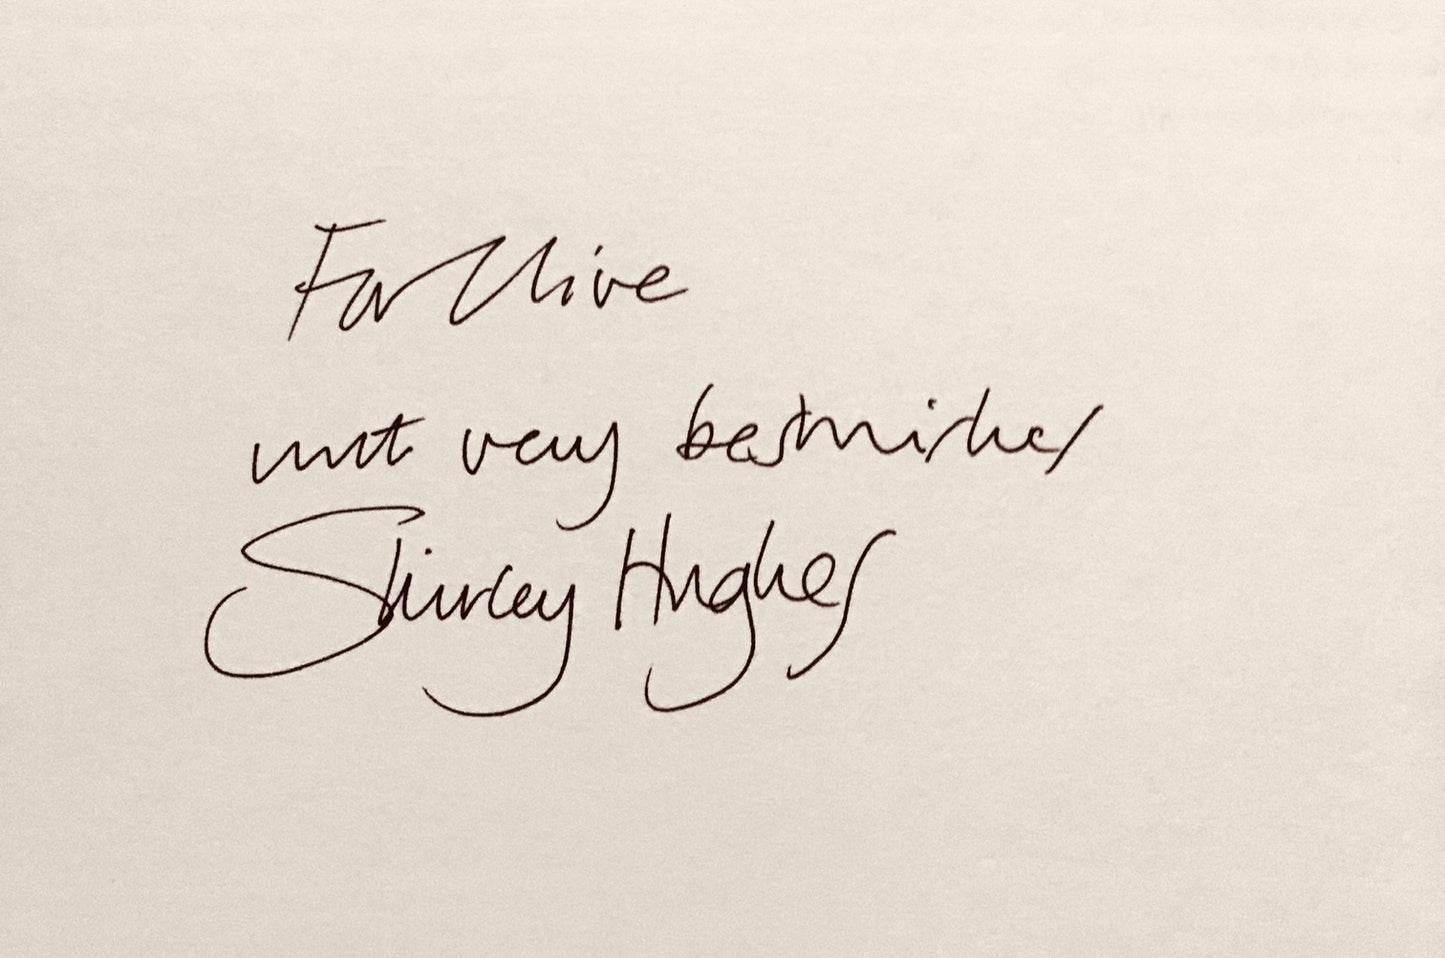 For Clive
with very best wishes
Shirley Hughes